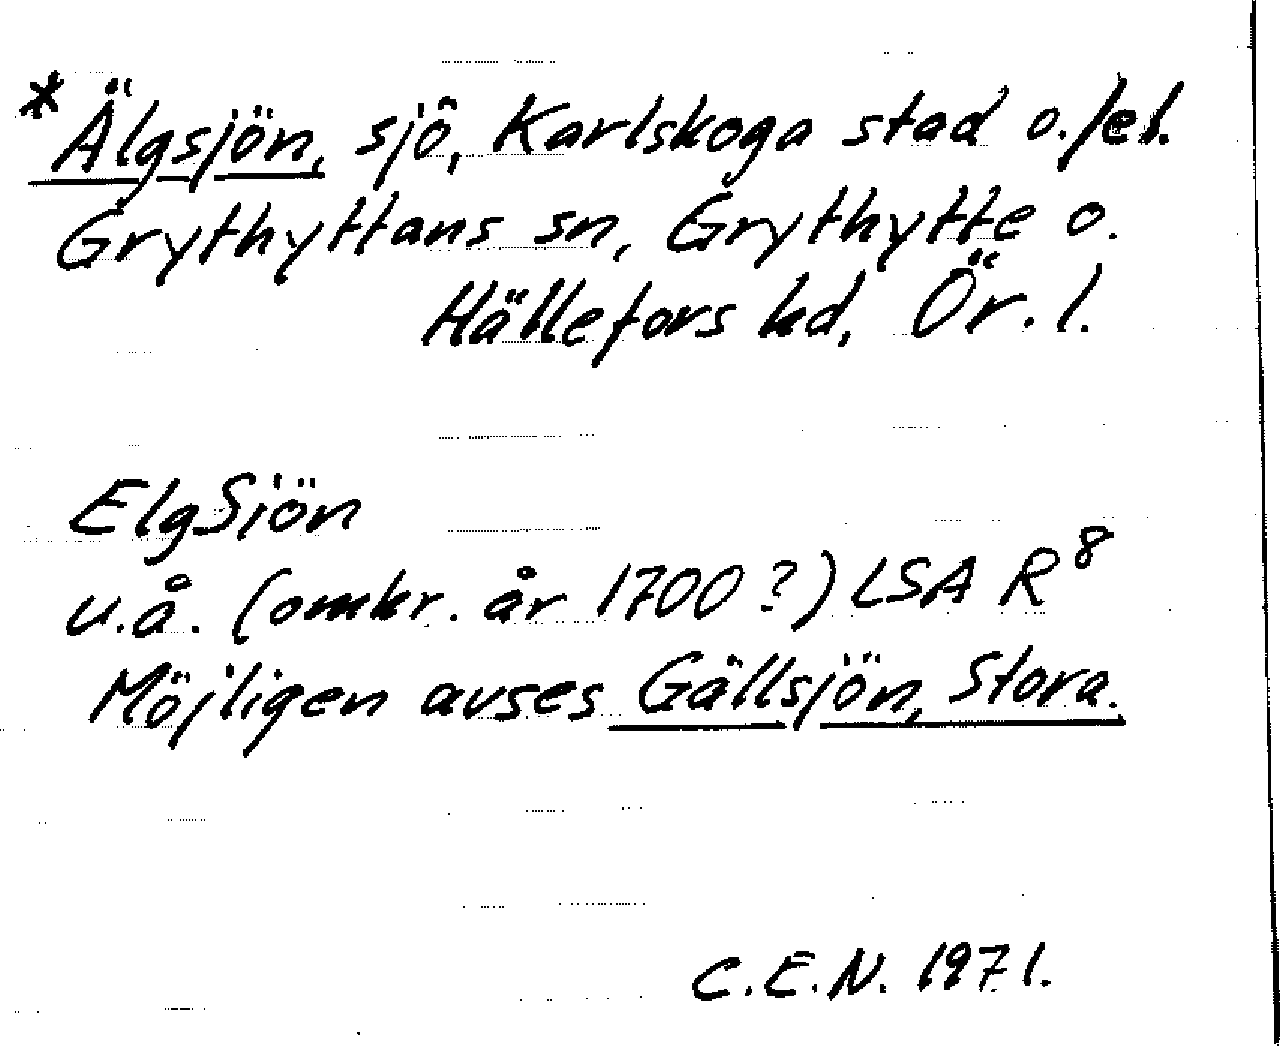 * Älgsjön, sjö, Karlskoga stad o./el.
Grythyttans sn, Grythytte o.
Hällefors hd, Ör. l.
ElgSiön
u.å. (omkr. år 1700?) LSA R8
Möjligen avses Gällsjön, Stora.
C.E.N. 1971.